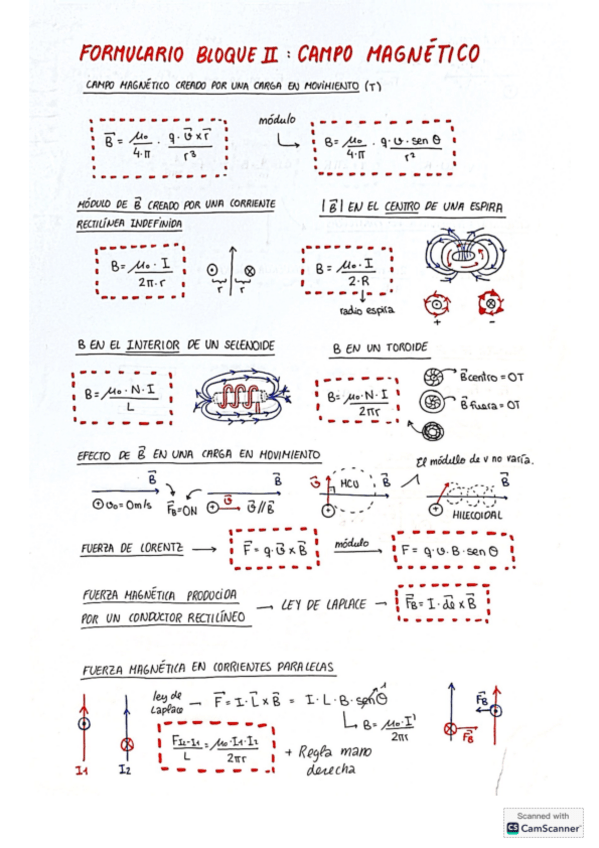 FORMULARIO BLOQUE II : CAMPO MAGNÉTICO
CAMPO MAGNÉTICO CREADO POR UNA CARGA EN MOVIMIENTO (T)
módulo
B⃗ = μ₀/4·π · q·v⃗ x r⃗/r³
B = μ₀/4·π · q·v·sen θ/r²
MÓDULO DE B⃗ CREADO POR UNA CORRIENTE
RECTILÍNEA INDEFINIDA
|B⃗| EN EL CENTRO DE UNA ESPIRA
B = μ₀·I/2π·r
r r
B = μ₀·I/2·R
radio espira
+ -
B EN EL INTERIOR DE UN SELENOIDE
B EN UN TOROIDE
B = μ₀·N·I/L
B = μ₀·N·I/2πr
B⃗ centro = 0T
B⃗ fuera = 0T
EFECTO DE B⃗ EN UNA CARGA EN MOVIMIENTO
El módulo de v no varía.
B⃗
v₀ = 0m/s
F⃗B = 0N
B⃗
v⃗
v⃗//B⃗
v⃗
MCU
B⃗
B⃗
HILECOIDAL
FUERZA DE LORENTZ → F⃗ = q·v⃗ x B⃗
módulo
F = q·v·B·sen θ
FUERZA MAGNÉTICA PRODUCIDA
POR UN CONDUCTOR RECTILÍNEO
→ LEY DE LAPLACE → F⃗B = I·dl⃗ x B⃗
FUERZA MAGNÉTICA EN CORRIENTES PARALELAS
ley de
Laplace
→ F⃗ = I·L⃗ x B⃗ = I·L·B·sen θ 1
B = μ₀·I'/2πr
F I2-I1/L = μ₀·I1·I2/2πr
+ Regla mano
derecha
I1 I2
F⃗B
F⃗B
Scanned with
CS CamScanner